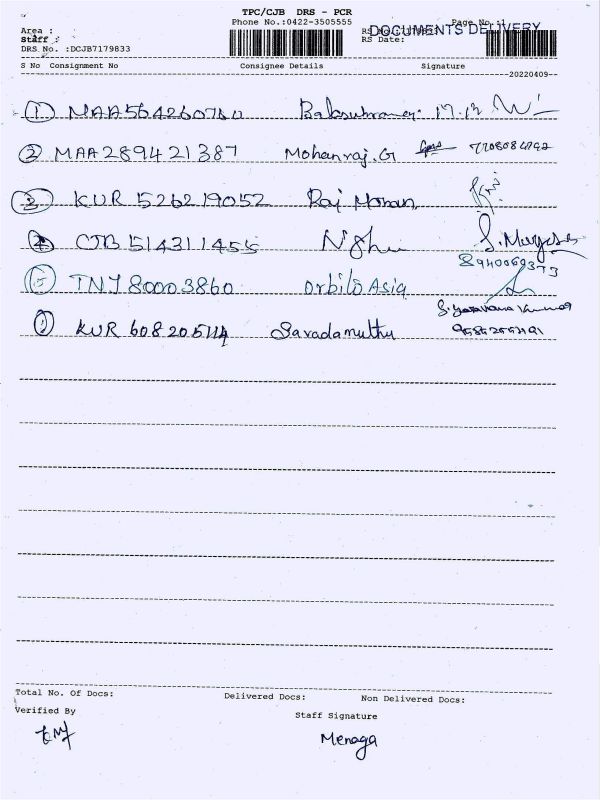 TPC/CJB DRS - PCR
Phone No.:0422-3505555
Page No.:1
DOCUMENTS DELIVERY
Area :
staff :
RS Date:
DRS No. :DCJB7179833
S No Consignment No Consignee Details Signature
--20220409--
① MAA564260780
② MAA289421387 Mohanraj.G 7708084792
③ KUR 526219052 Raj Mohan
④ CJB 514311455 S.Muryesh
8940069373
⑤ TNJ 80003860 Orbito Asia
S. Saravana Kumar
① KUR 608205114 Saradamuthu
Total No. Of Docs: Delivered Docs: Non Delivered Docs:
Verified By Staff Signature
Menaga